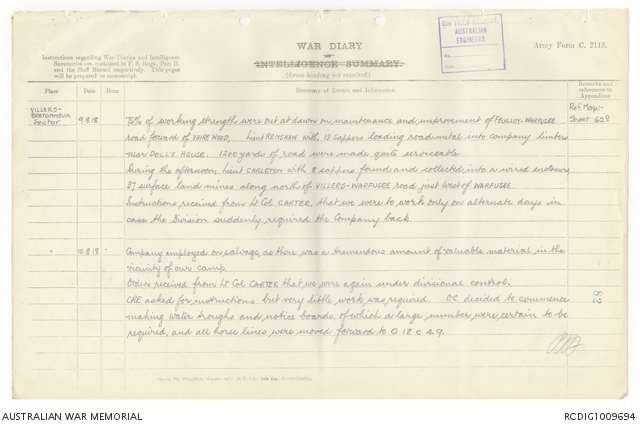 WAR DIARY
or
INTELLIGENCE SUMMARY.
(Erase heading not required.)
Instructions regarding War Diaries and Intelligence
Summaries are contained in F. S. Regs., Part II.
and the Staff Manual respectively. Title pages
will be prepared in manuscript.
AUSTRALIAN
ENGINEERS.
Army Form C. 2118.
Place Date Hour Summary of Events and Information Remarks and
references to
Appendices
VILLERS-
BRETONNEUX
Sector 9.8.18 75% of working strength were out at dawn on maintenance and improvement of FOUILLOY-WARFUSEE Ref. Map:-
road forward of VAIRE WOOD, Lieut RENSHAW with 12 sappers loading roadmetal into company limbers Sheet 62D
near DOLL'S HOUSE. 1200 yards of road were made quite serviceable
During the afternoon Lieut CARLETON with 8 sappers found and collected into a wired enclosure
27 surface land mines along north of VILLERS-WARFUSEE road just West of WARFUSEE
Instructions received from Lt Col CARTER that we were to work only on alternate days in
case the Division suddenly required the Company back.
" 10.8.18 - Company employed on salvage as there was a tremendous amount of valuable material in the
vicinity of our camp.
Orders received from Lt Col CARTER that we were again under divisional control.
CRE asked for instructions but very little work was required. OC decided to commence
making water troughs and notice boards of which a large number were certain to be
required, and all horse lines were moved forward to O.18.c.4.9.
AUSTRALIAN WAR MEMORIAL
RCDIG1009694